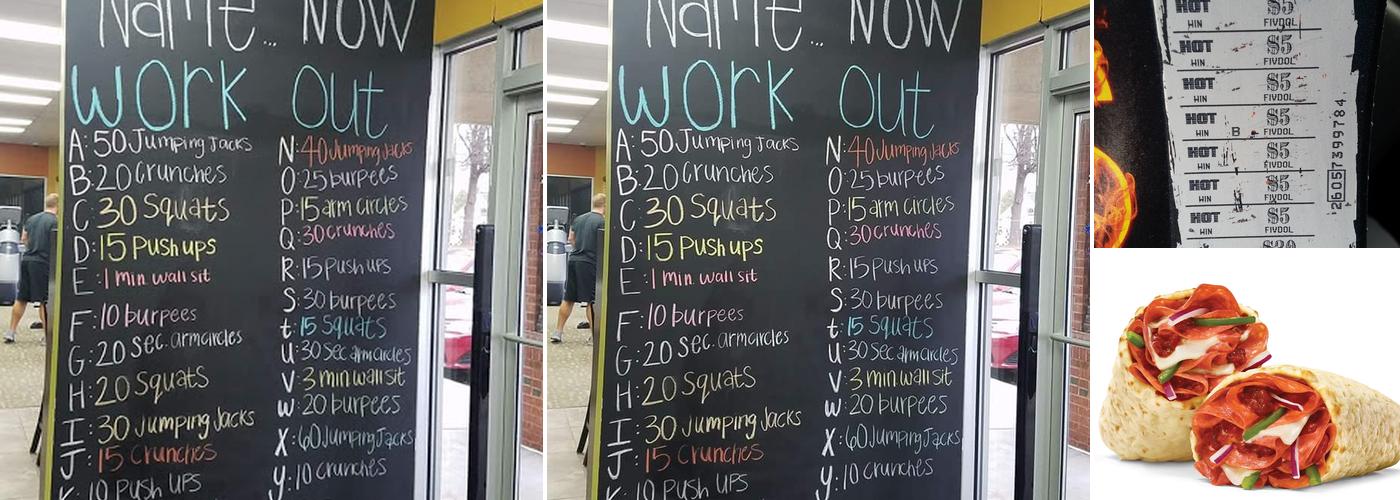 Name... Now
Work Out
A: 50 Jumping Jacks
B: 20 Crunches
C: 30 Squats
D: 15 Push ups
E: 1 min. wall sit
F: 10 burpees
G: 20 Sec. arm circles
H: 20 Squats
I: 30 Jumping Jacks
J: 15 Crunches
K: 10 Push ups
N: 40 Jumping Jacks
O: 25 burpees
P: 15 arm circles
Q: 30 crunches
R: 15 Push ups
S: 30 burpees
t: 15 Squats
U: 30 Sec arm circles
V: 3 min wall sit
W: 20 burpees
X: 60 Jumping Jacks
y: 10 crunches
Name... Now
Work Out
A: 50 Jumping Jacks
B: 20 Crunches
C: 30 Squats
D: 15 Push ups
E: 1 min. wall sit
F: 10 burpees
G: 20 Sec. arm circles
H: 20 Squats
I: 30 Jumping Jacks
J: 15 Crunches
K: 10 Push ups
N: 40 Jumping Jacks
O: 25 burpees
P: 15 arm circles
Q: 30 crunches
R: 15 Push ups
S: 30 burpees
t: 15 Squats
U: 30 Sec arm circles
V: 3 min wall sit
W: 20 burpees
X: 60 Jumping Jacks
y: 10 crunches
HOT $5
WIN FIVDOL
HOT $5
WIN FIVDOL
HOT $5
WIN FIVDOL
HOT $5
WIN B FIVDOL
HOT $5
WIN FIVDOL
HOT $5
WIN FIVDOL
HOT $5
WIN FIVDOL
HOT $20
26057399784